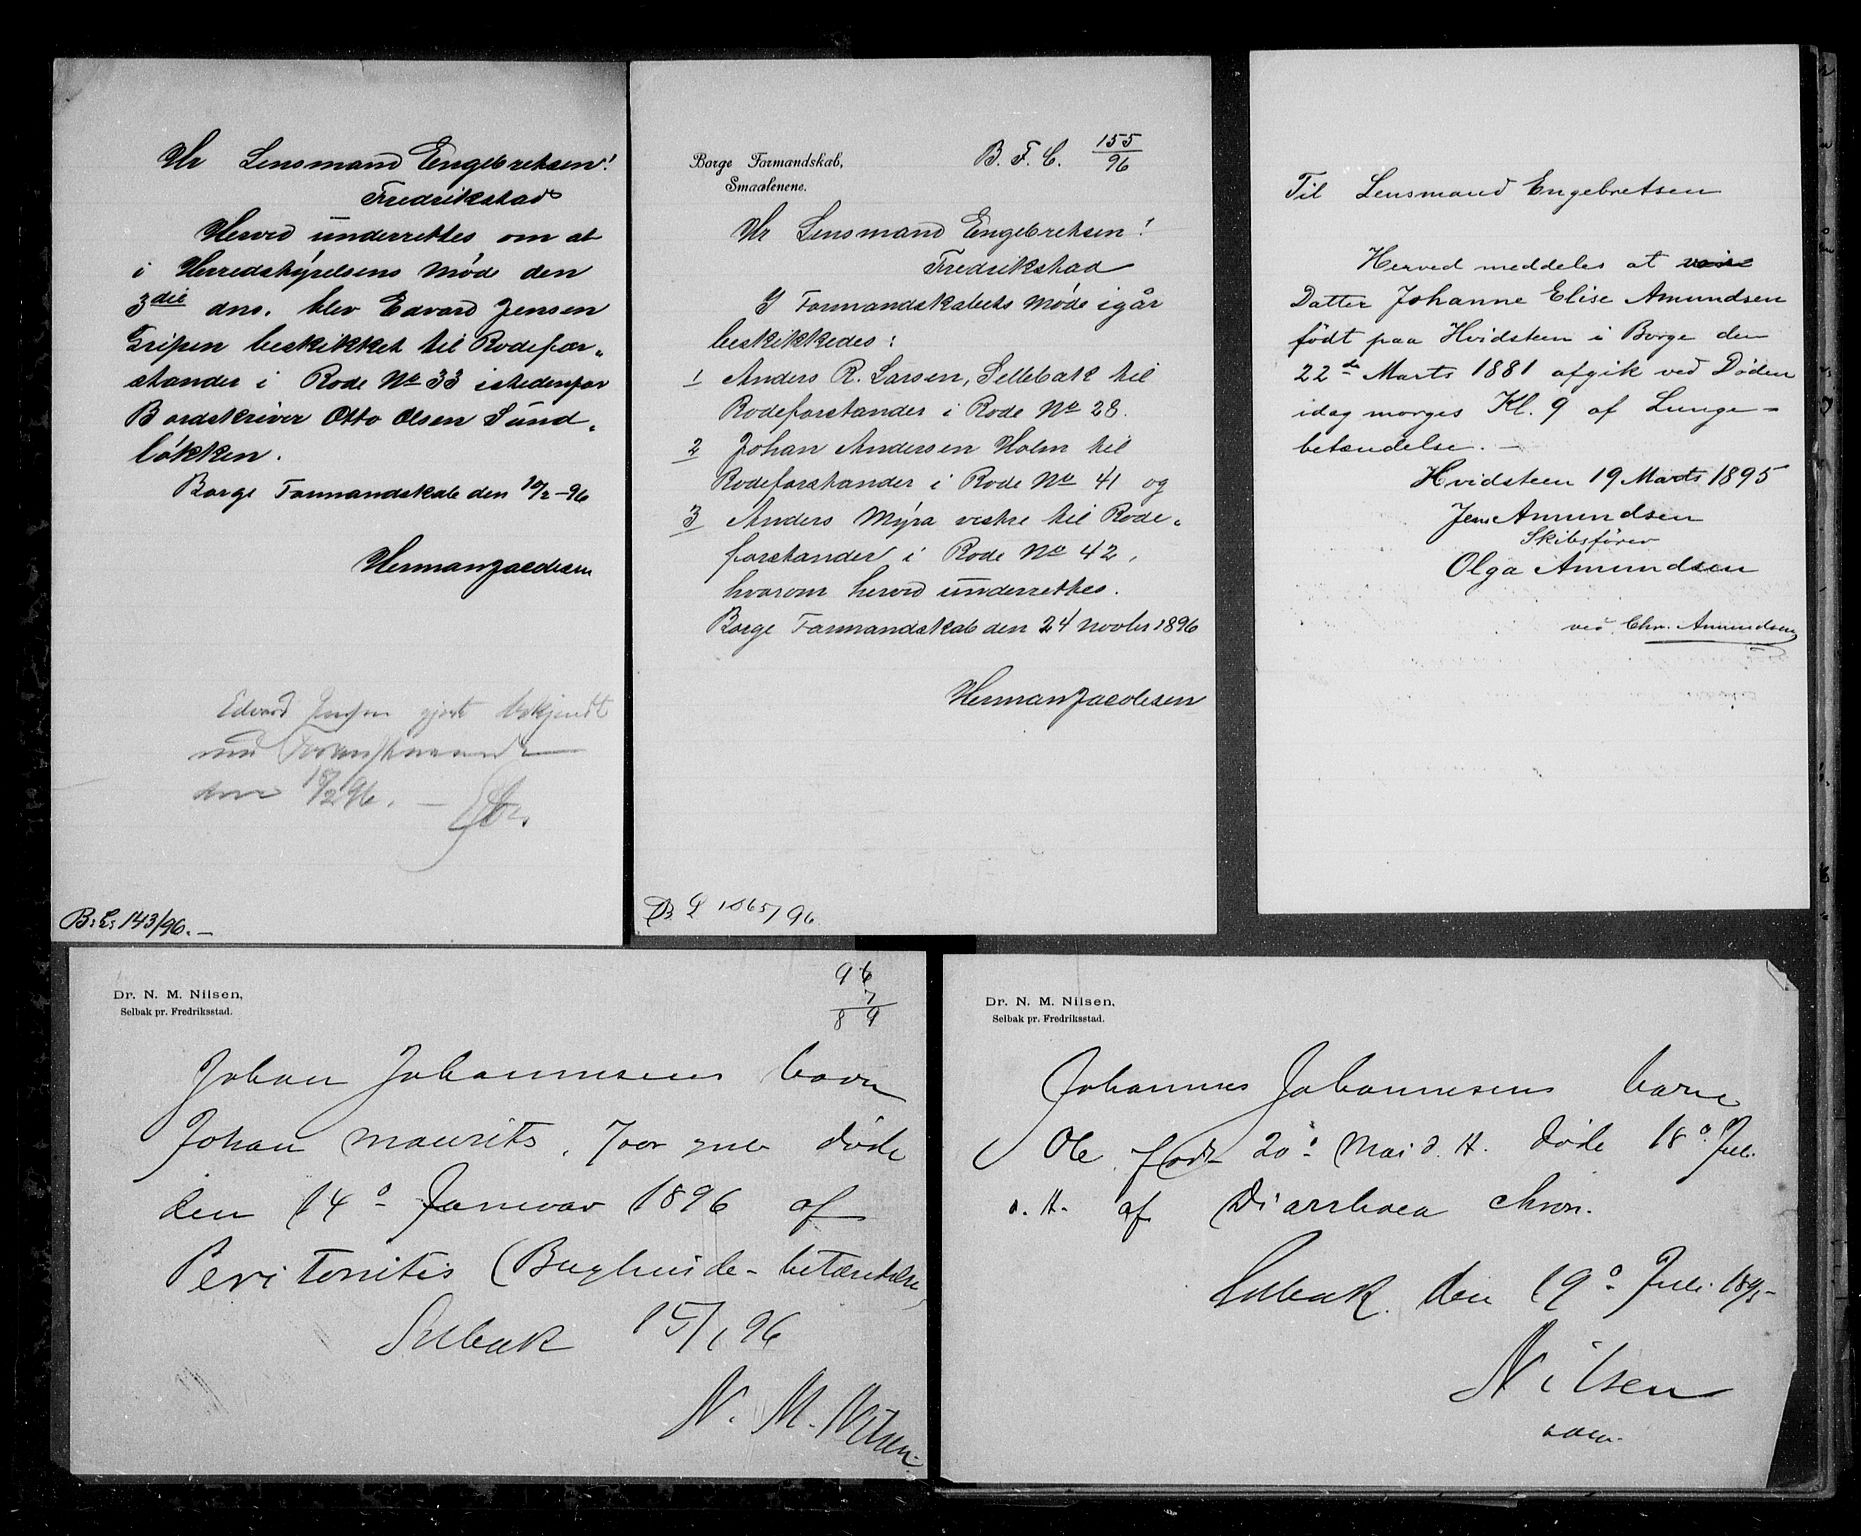 Hr Lensmand Engebretsen!
Fredrikstad
Herved underrettes om at
i Herredstyrelsens Møde den
3die dns. blev Edvard Jensen
Gripen beskikket til Rodefor-
stander i Rode No 33 istedenfor
Bordskriver Otto Olsen Sund-
løkken.
Borge Formandskab den 10/2-96
Herman Jacobsen
Edvard Jensen gjort bekjendt
med
den 18/2 96.
B. L. 143/96.-
Borge Formandskab,
Smaalenene.
B. F. C. 155/96
Hr Lensmand Engebretsen!
Fredrikstad
I Formandskabets Møde igår
beskikkedes:
1 Anders R. Larsen, Sellebak til
Rodeforstander i Rode No 28.
2 Johan Andersen Holm til
Rodeforstander i Rode No 41 og
3 Anders Myra vestre til Rode-
forstander i Rode No 42,
hvorom herved underrettes.
Borge Formandskab den 24 novbr 1896
Herman Jacobsen
B L 1065/96
Til Lensmand Engebretsen
Herved meddeles at
Datter Johanne Elise Amundsen
født paa Hvidsteen i Borge den
22de Marts 1881 afgik ved Døden
idag morges Kl. 9 af Lunge-
betændelse. -
Hvidsteen 19 Marts 1895
Jens Amundsen
Skibsfører
Olga Amundsen
ved Chr. Amundsen
Dr. N. M. Nilsen,
Selbak pr. Fredriksstad.
96
7
89
Johan Johannesens barn
Johan Maurits, 7 aar gml. døde
den 14o Januar 1896 af
Peritonitis (Bughinde-betændelse)
Selbak 15/1 96
N. M. Nilsen.
Dr. N. M. Nilsen,
Selbak pr. Fredriksstad.
Johannes Johannesens barn
Ole født 20o Mai d. A. døde 18o Juli
d. A. af Diarrhoea chron.
Selbak den 19o Juli 1895
Nilsen